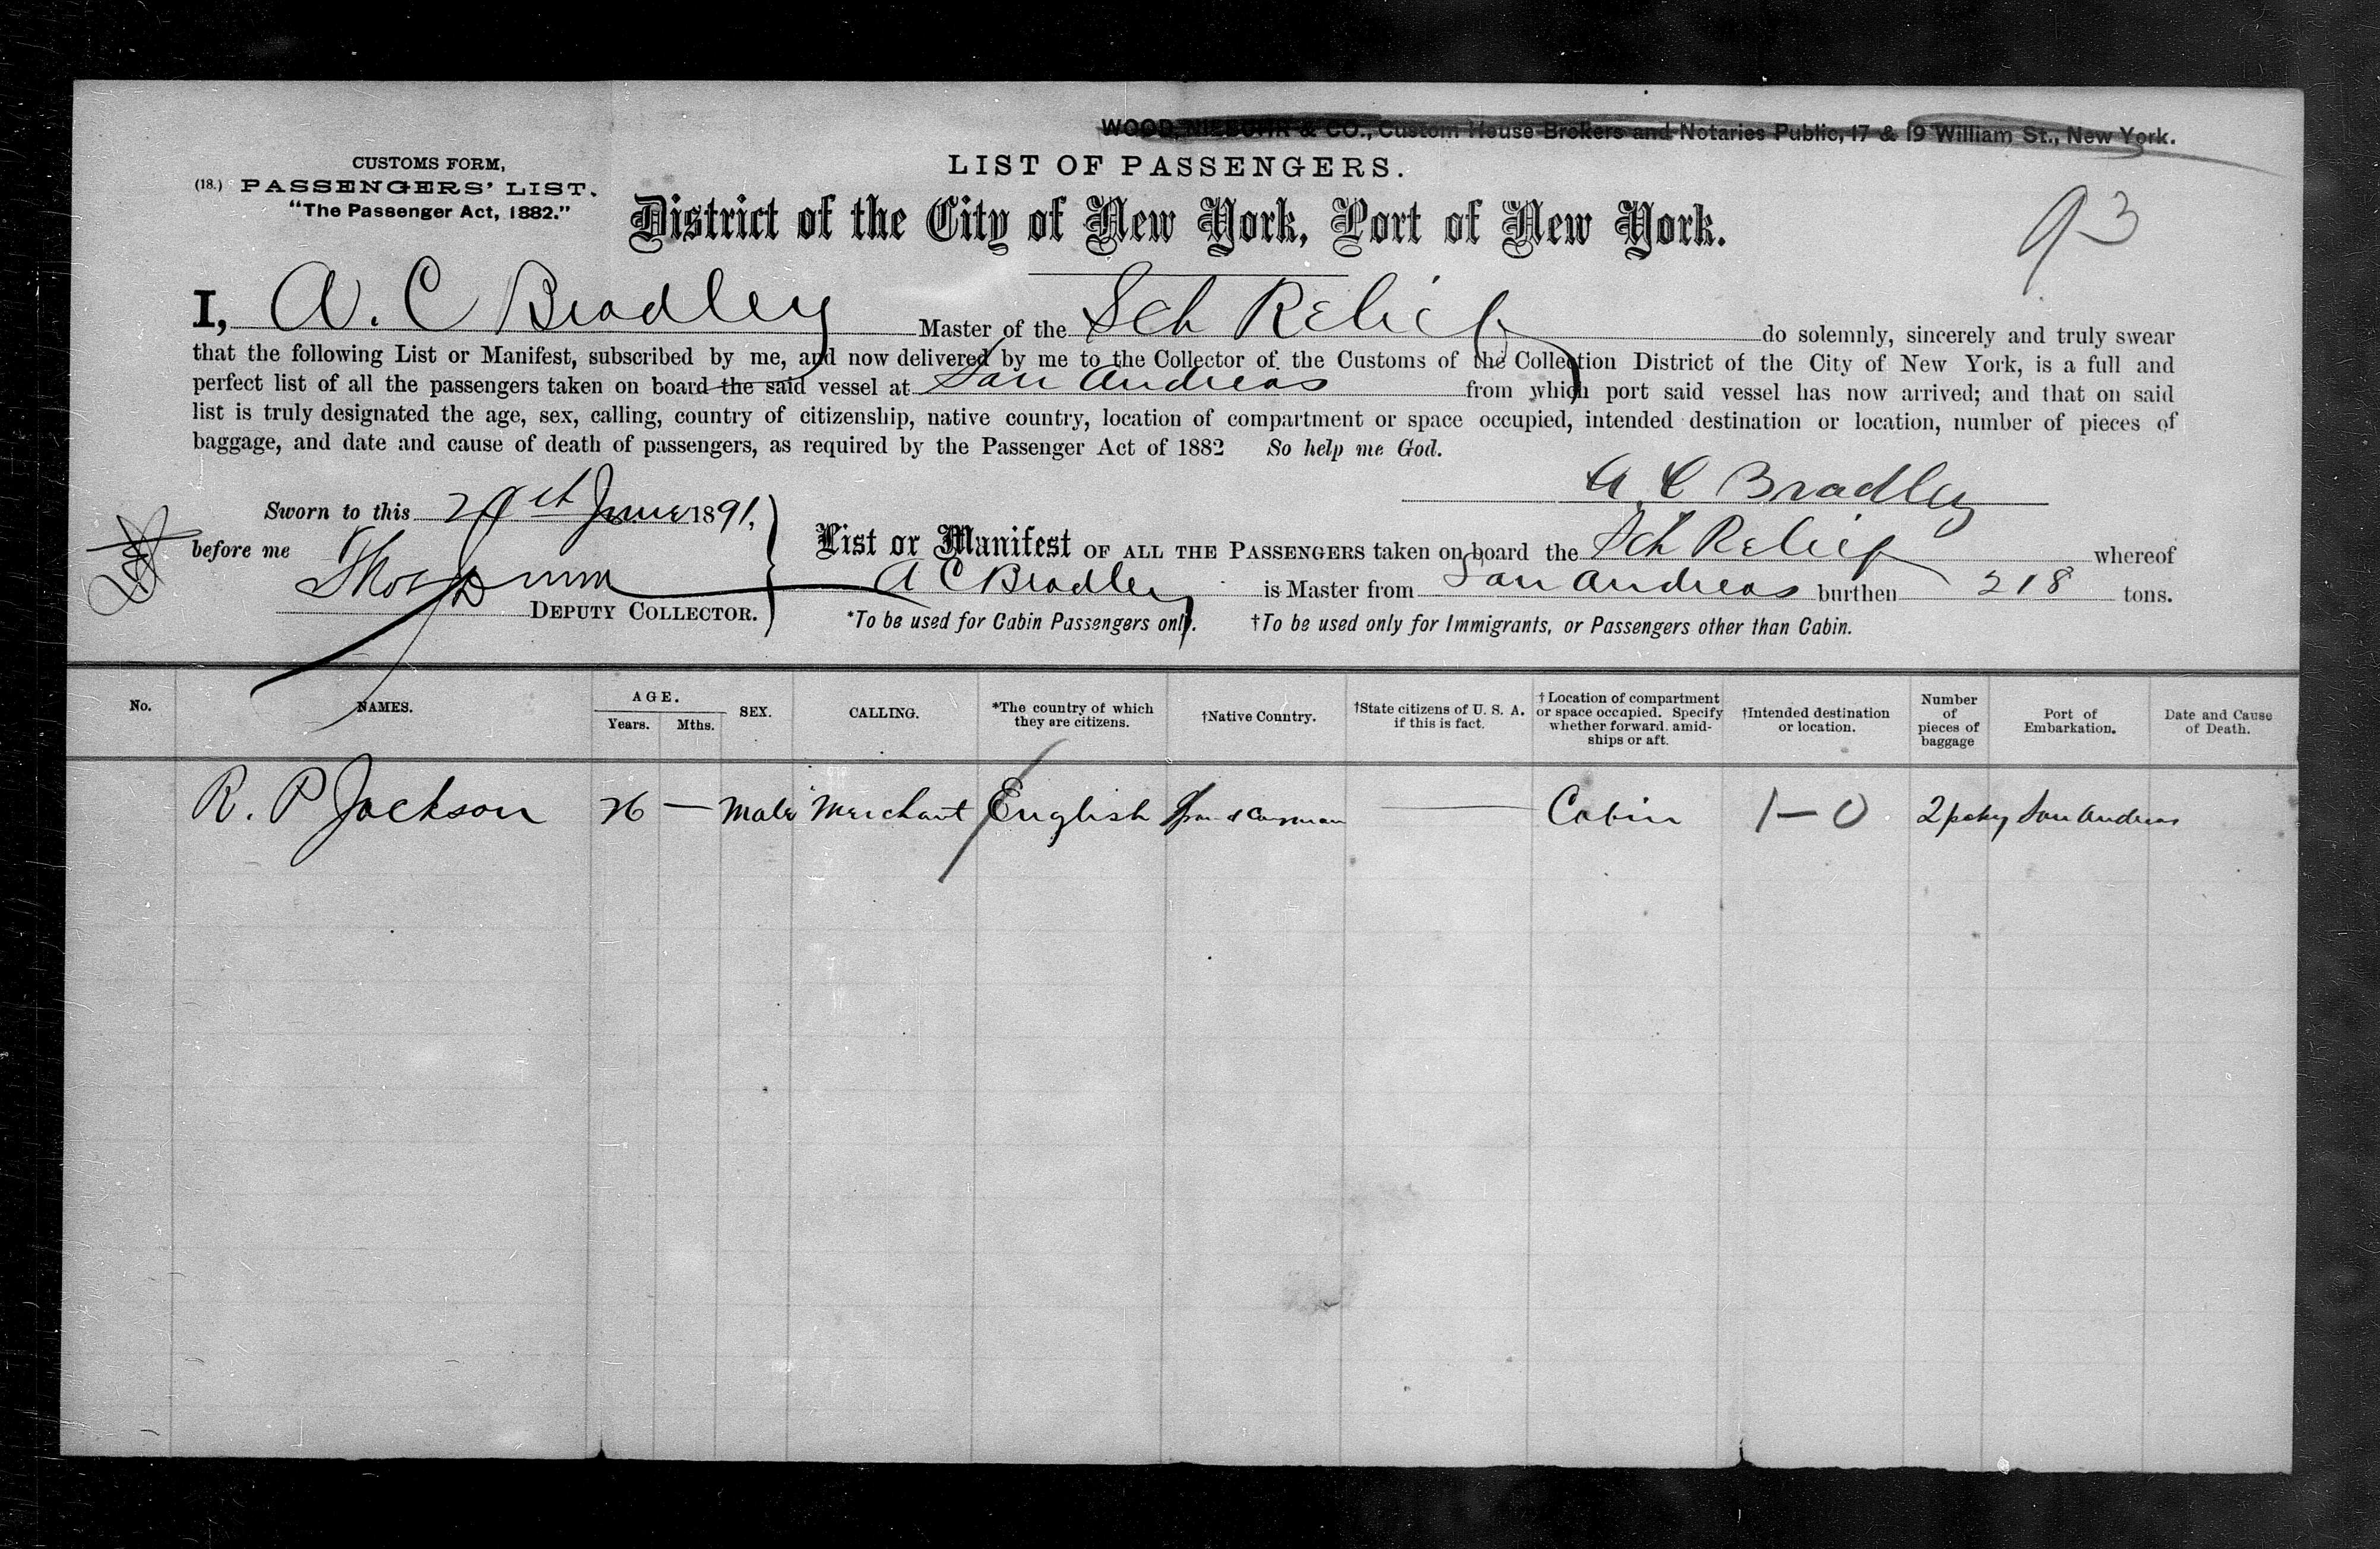 WOOD, NIEBUHR & CO., Custom House Brokers and Notaries Public, 17 & 19 William St., New York.
CUSTOMS FORM,
(18.) PASSENGERS' LIST.
"The Passenger Act, 1882."
LIST OF PASSENGERS.
District of the City of New York, Port of New York.
93
I, A. C Bradley Master of the Sch Relief do solemnly, sincerely and truly swear
that the following List or Manifest, subscribed by me, and now delivered by me to the Collector of the Customs of the Collection District of the City of New York, is a full and
perfect list of all the passengers taken on board the said vessel at San Andreas from which port said vessel has now arrived; and that on said
list is truly designated the age, sex, calling, country of citizenship, native country, location of compartment or space occupied, intended destination or location, number of pieces of
baggage, and date and cause of death of passengers, as required by the Passenger Act of 1882 So help me God.
A C Bradley
Sworn to this June 1891,
before me
Thos
DEPUTY COLLECTOR.
List or Manifest OF ALL THE PASSENGERS taken on board the Sch Relief whereof
A C Bradley is Master from San Andreas burthen 218 tons.
*To be used for Cabin Passengers only. †To be used only for Immigrants, or Passengers other than Cabin.
No.
NAMES.
AGE.
Years. Mths.
SEX.
CALLING.
*The country of which
they are citizens.
†Native Country.
†State citizens of U. S. A.
if this is fact.
†Location of compartment
or space occupied. Specify
whether forward, amid-
ships or aft.
†Intended destination
or location.
Number
of
pieces of
baggage
Port of
Embarkation.
Date and Cause
of Death.
R. P Jackson 26 — Male Merchant English Cabin 1—0 2 San Andreas